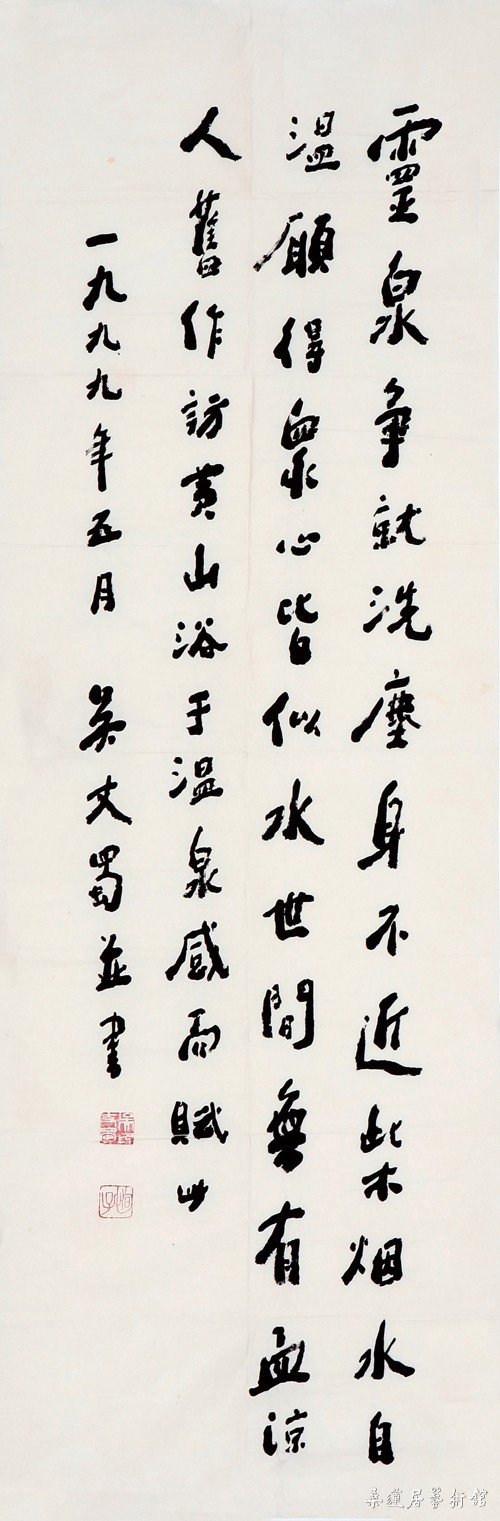 靈泉爭就洗塵身不近柴烟水自
温願得眾心皆似水世間無有血涼
人舊作訪黄山浴于温泉感而賦此
一九九九年五月 吴丈蜀並書
桑蓮居藝術館